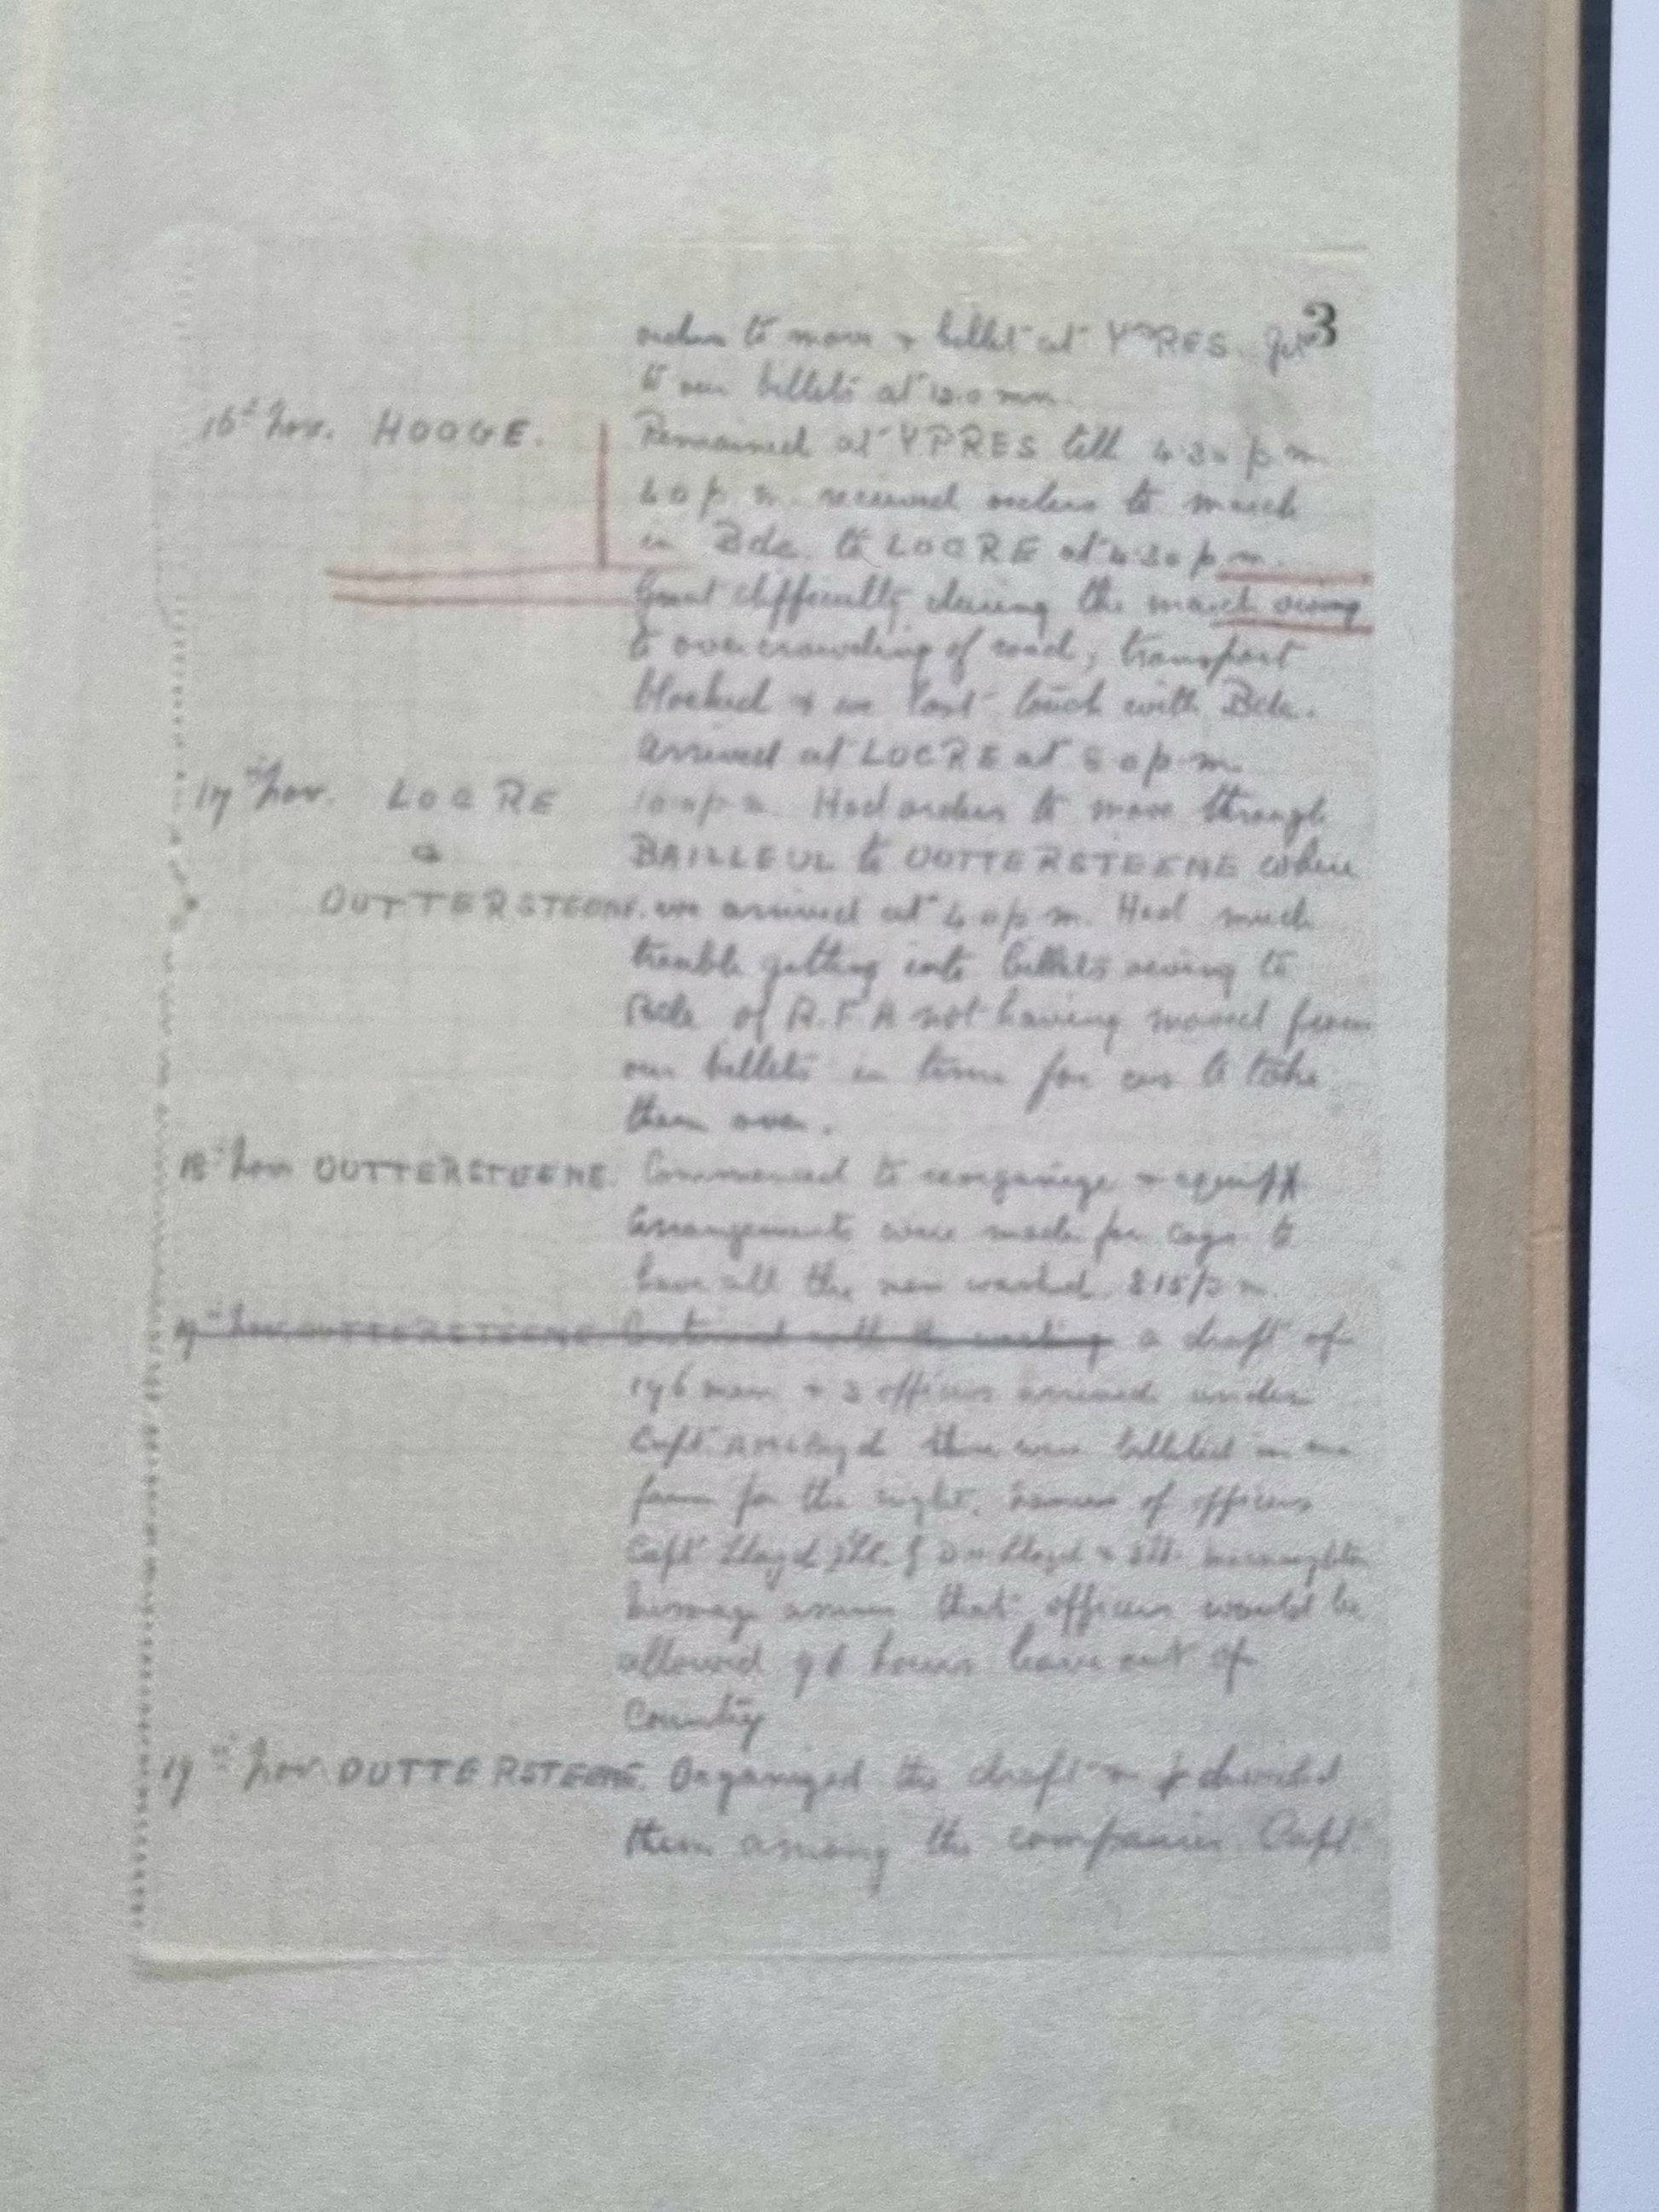 3
orders to move + billet at YPRES. Got
to our billets at 12.0 mn.
16th Nov. HOOGE. Remained at YPRES till 4.30 p m
4.0 p. m. received orders to march
in Bde. to LOCRE at 4.30 p.m.
Great difficulty during the march owing
to overcrowding of road, transport
blocked + we lost touch with Bde.
Arrived at LOCRE at 8.0 p.m.
17th Nov. LOCRE 10.0 p.m. Had orders to move through
BAILLEUL to OUTTERSTEENE where
OUTTERSTEENE. we arrived at 4.0 p.m. Had much
trouble getting into billets owing to
Bde of R.F.A not having moved from
our billets in time for us to take
them over.
18th Nov OUTTERSTEENE. Commenced to reorganize + equip
Arrangements were made for Coys to
have all the men washed. 8.15 p m.
19th Nov. OUTTERSTEENE Continued with the a draft of
196 men + 2 officers arrived under
Capt. Lloyd these were billeted in one
farm for the night. Names of officers
Capt Lloyd Lloyd +
message arrived that officers would be
allowed 96 hours leave out of
Country
19th Nov. OUTTERSTEENE. Organized the draft + divided
them among the companies. Capt.